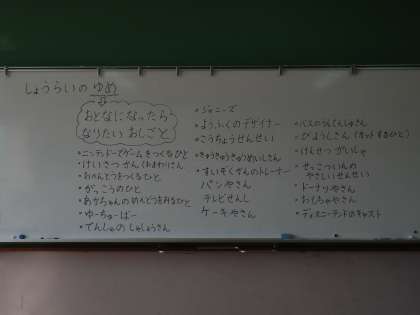 しょうらいの ゆめ
おとなになったら
なりたい おしごと
・ニンテンドーでゲームをつくるひと
・けいさつかん(おまわりさん)
・おべんとうをつくるひと
・がっこうのひと
・あかちゃんのめんどうをみるひと
・ゆーちゅーばー
・でんしゃの しゃしょうさん
・ジャニーズ
・ようふくのデザイナー
・こうちょうせんせい
・きゅうきゅうきゅうめいしさん
・すいぞくかんのトレーナー
パンやさん
テレビせんし
ケーキやさん
・バスのうんてんしゅさん
・びようしさん(カットするひと)
・けんせつがいしゃ
・せっこついんの
やさしいせんせい
・ドーナツやさん
・おもちゃやさん
・ディズニーランドのキャスト